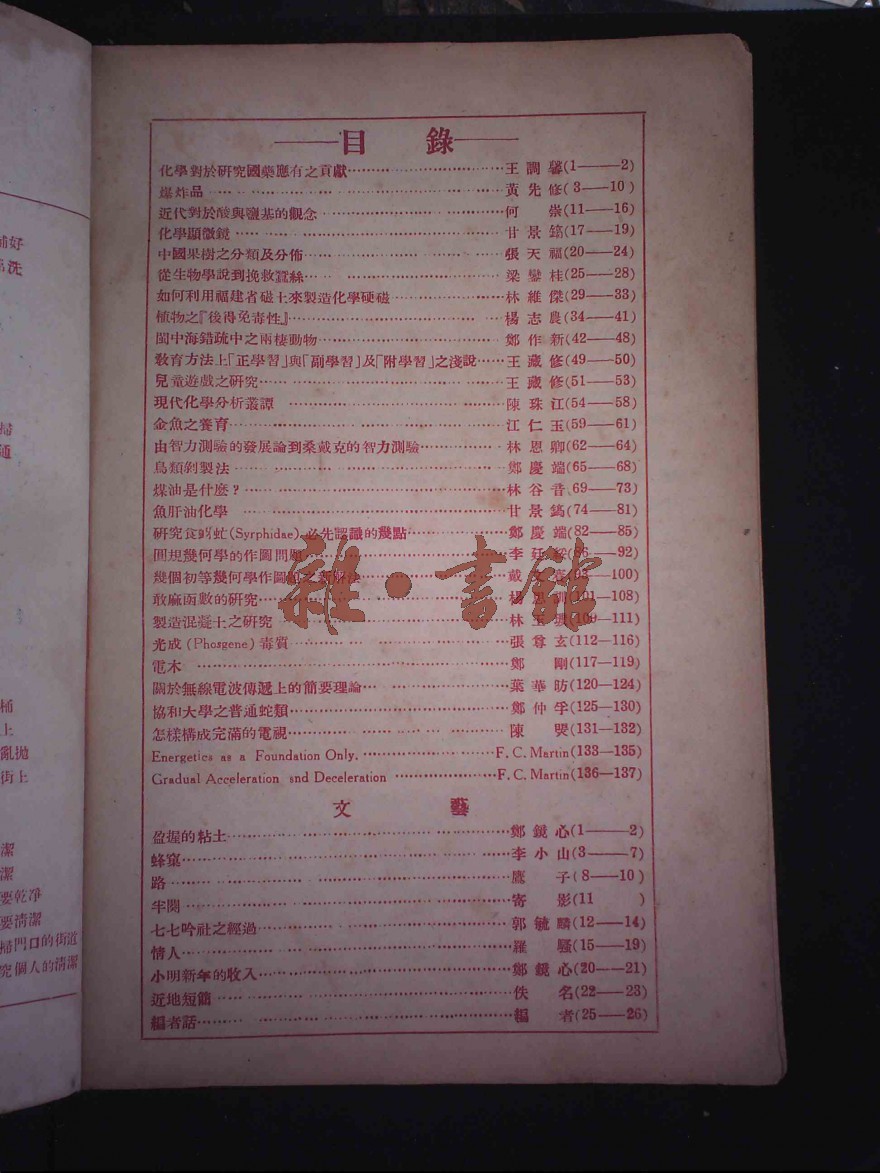 目錄
化學對於研究國藥應有之貢獻 王調馨(1——2)
爆炸品 黃先修(3——10)
近代對於酸與鹽基的觀念 何崇(11——16)
化學顯微鏡 甘景鎬(17——19)
中國果樹之分類及分佈 張天福(20——24)
從生物學說到挽救蠶絲 梁鑾桂(25——28)
如何利用福建省磁土來製造化學硬磁 林維傑(29——33)
植物之『後得免毒性』 楊志農(34——41)
閩中海錯疏中之兩棲動物 鄭作新(42——48)
敎育方法上「正學習」與「副學習」及「附學習」之淺說 王藏修(49——50)
兒童遊戲之研究 王藏修(51——53)
現代化學分析叢譚 陳珠江(54——58)
金魚之養育 江仁玉(59——61)
由智力測驗的發展論到桑戴克的智力測驗 林恩卿(62——64)
鳥類剝製法 鄭慶端(65——68)
煤油是什麼? 林谷音(69——73)
魚肝油化學 甘景鎬(74——81)
研究食蚜虻(Syrphidae)必先認識的幾點 鄭慶端(82——85)
圓規幾何學的作圖問題 李廷(86——92)
幾個初等幾何學作圖題之新解法 戴(93——100)
敢麻函數的研究 楊思(101—108)
製造混凝土之研究 林玉(109—111)
光成(Phosgene)毒質 張尊玄(112—116)
電木 鄭剛(117—119)
關於無線電波傳遞上的簡要理論 葉華昉(120—124)
協和大學之普通蛇類 鄭仲孚(125—130)
怎樣構成完滿的電視 陳(131—132)
Energetics as a Foundation Only. F. C. Martin(133—135)
Gradual Acceleration and Deceleration F. C. Martin(136—137)
文藝
盈握的粘土 鄭鏡心(1——2)
蜂窠 李小山(3——7)
路 鷹子(8——10)
半闋 寄影(11)
七七吟社之經過 郭毓麟(12——14)
情人 羅騷(15——19)
小明新年的收入 鄭鏡心(20——21)
近地短簡 佚名(22——23)
編者話 編者(25——26)
雜·書館
補好
洗
掃
通
桶
上
亂拋
街上
潔
潔
要乾淨
要清潔
掃門口的街道
究個人的清潔